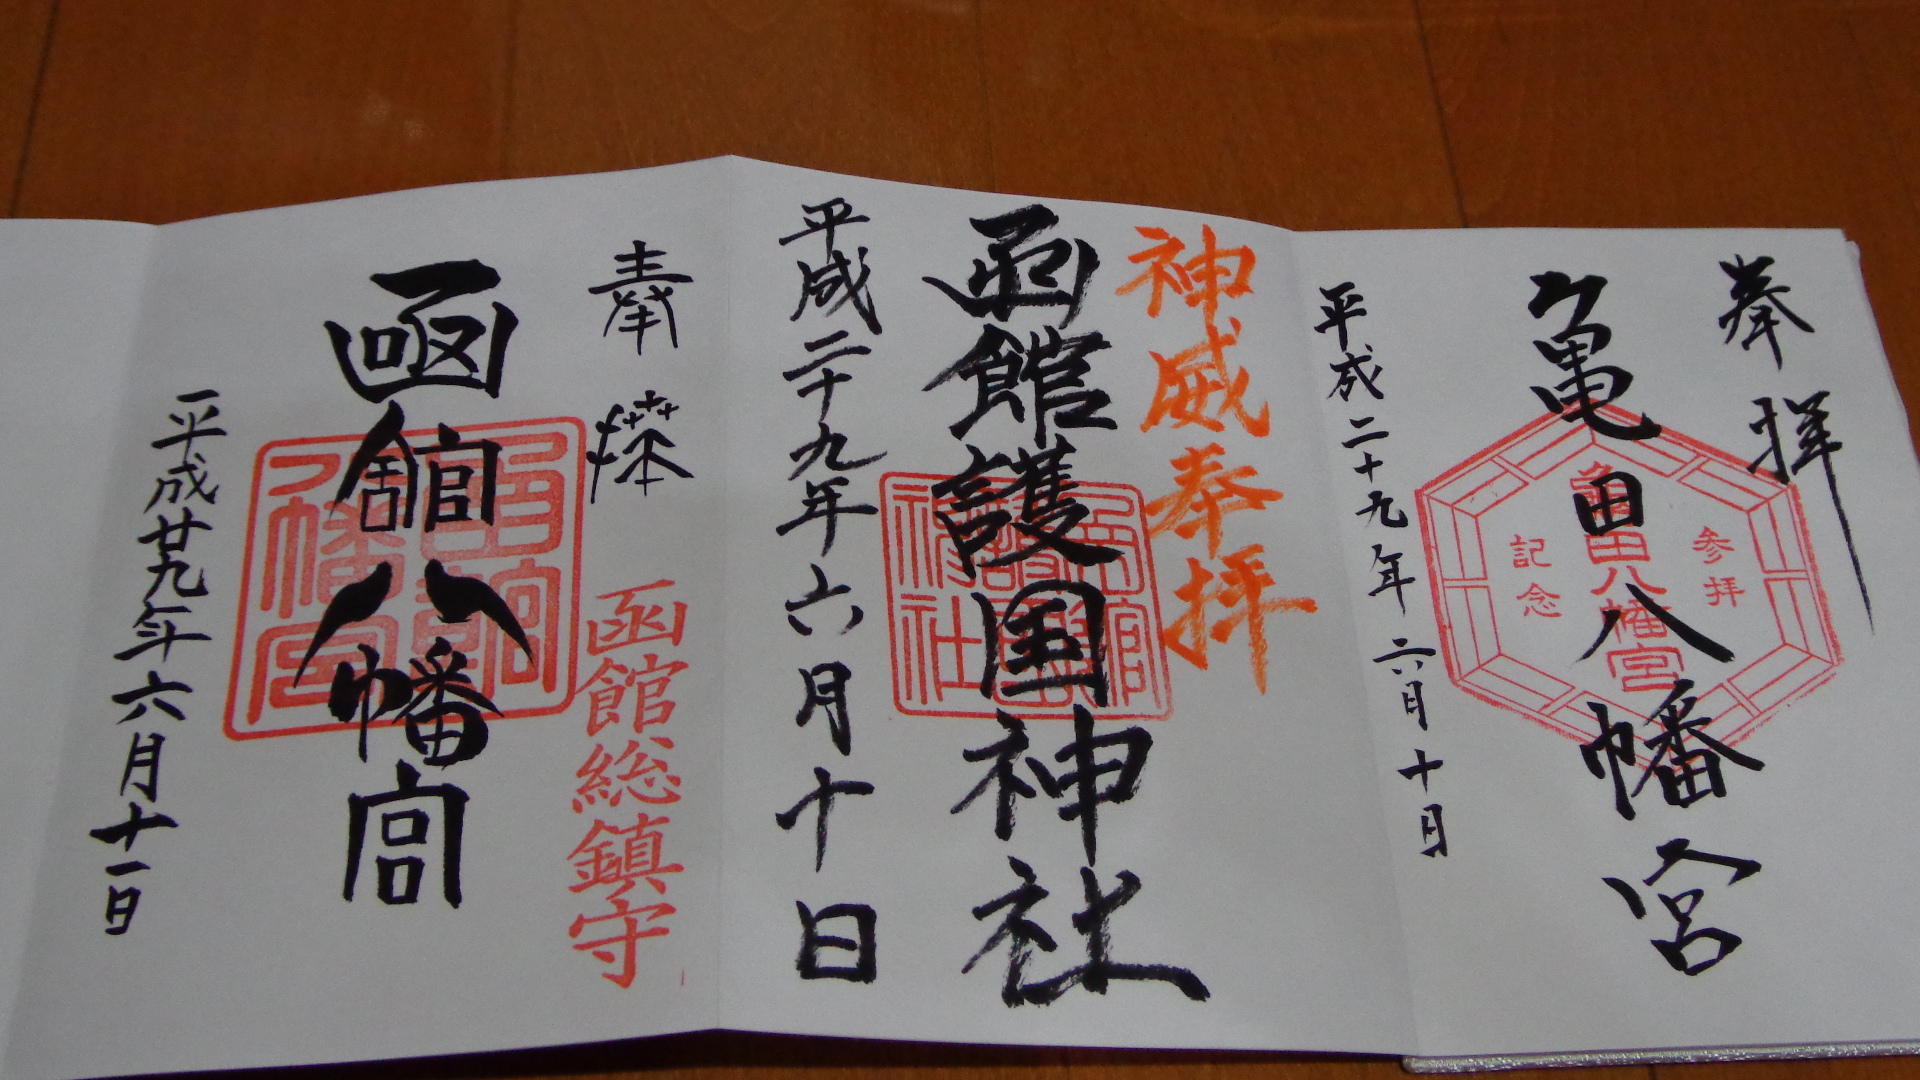 奉拝
亀田八幡宮
参拝
亀田八幡宮
記念
平成二十九年六月十日
神威奉拝
函館護国神社
平成二十九年六月十日
奉拝
函館総鎮守
函館八幡宮
平成廿九年六月十一日